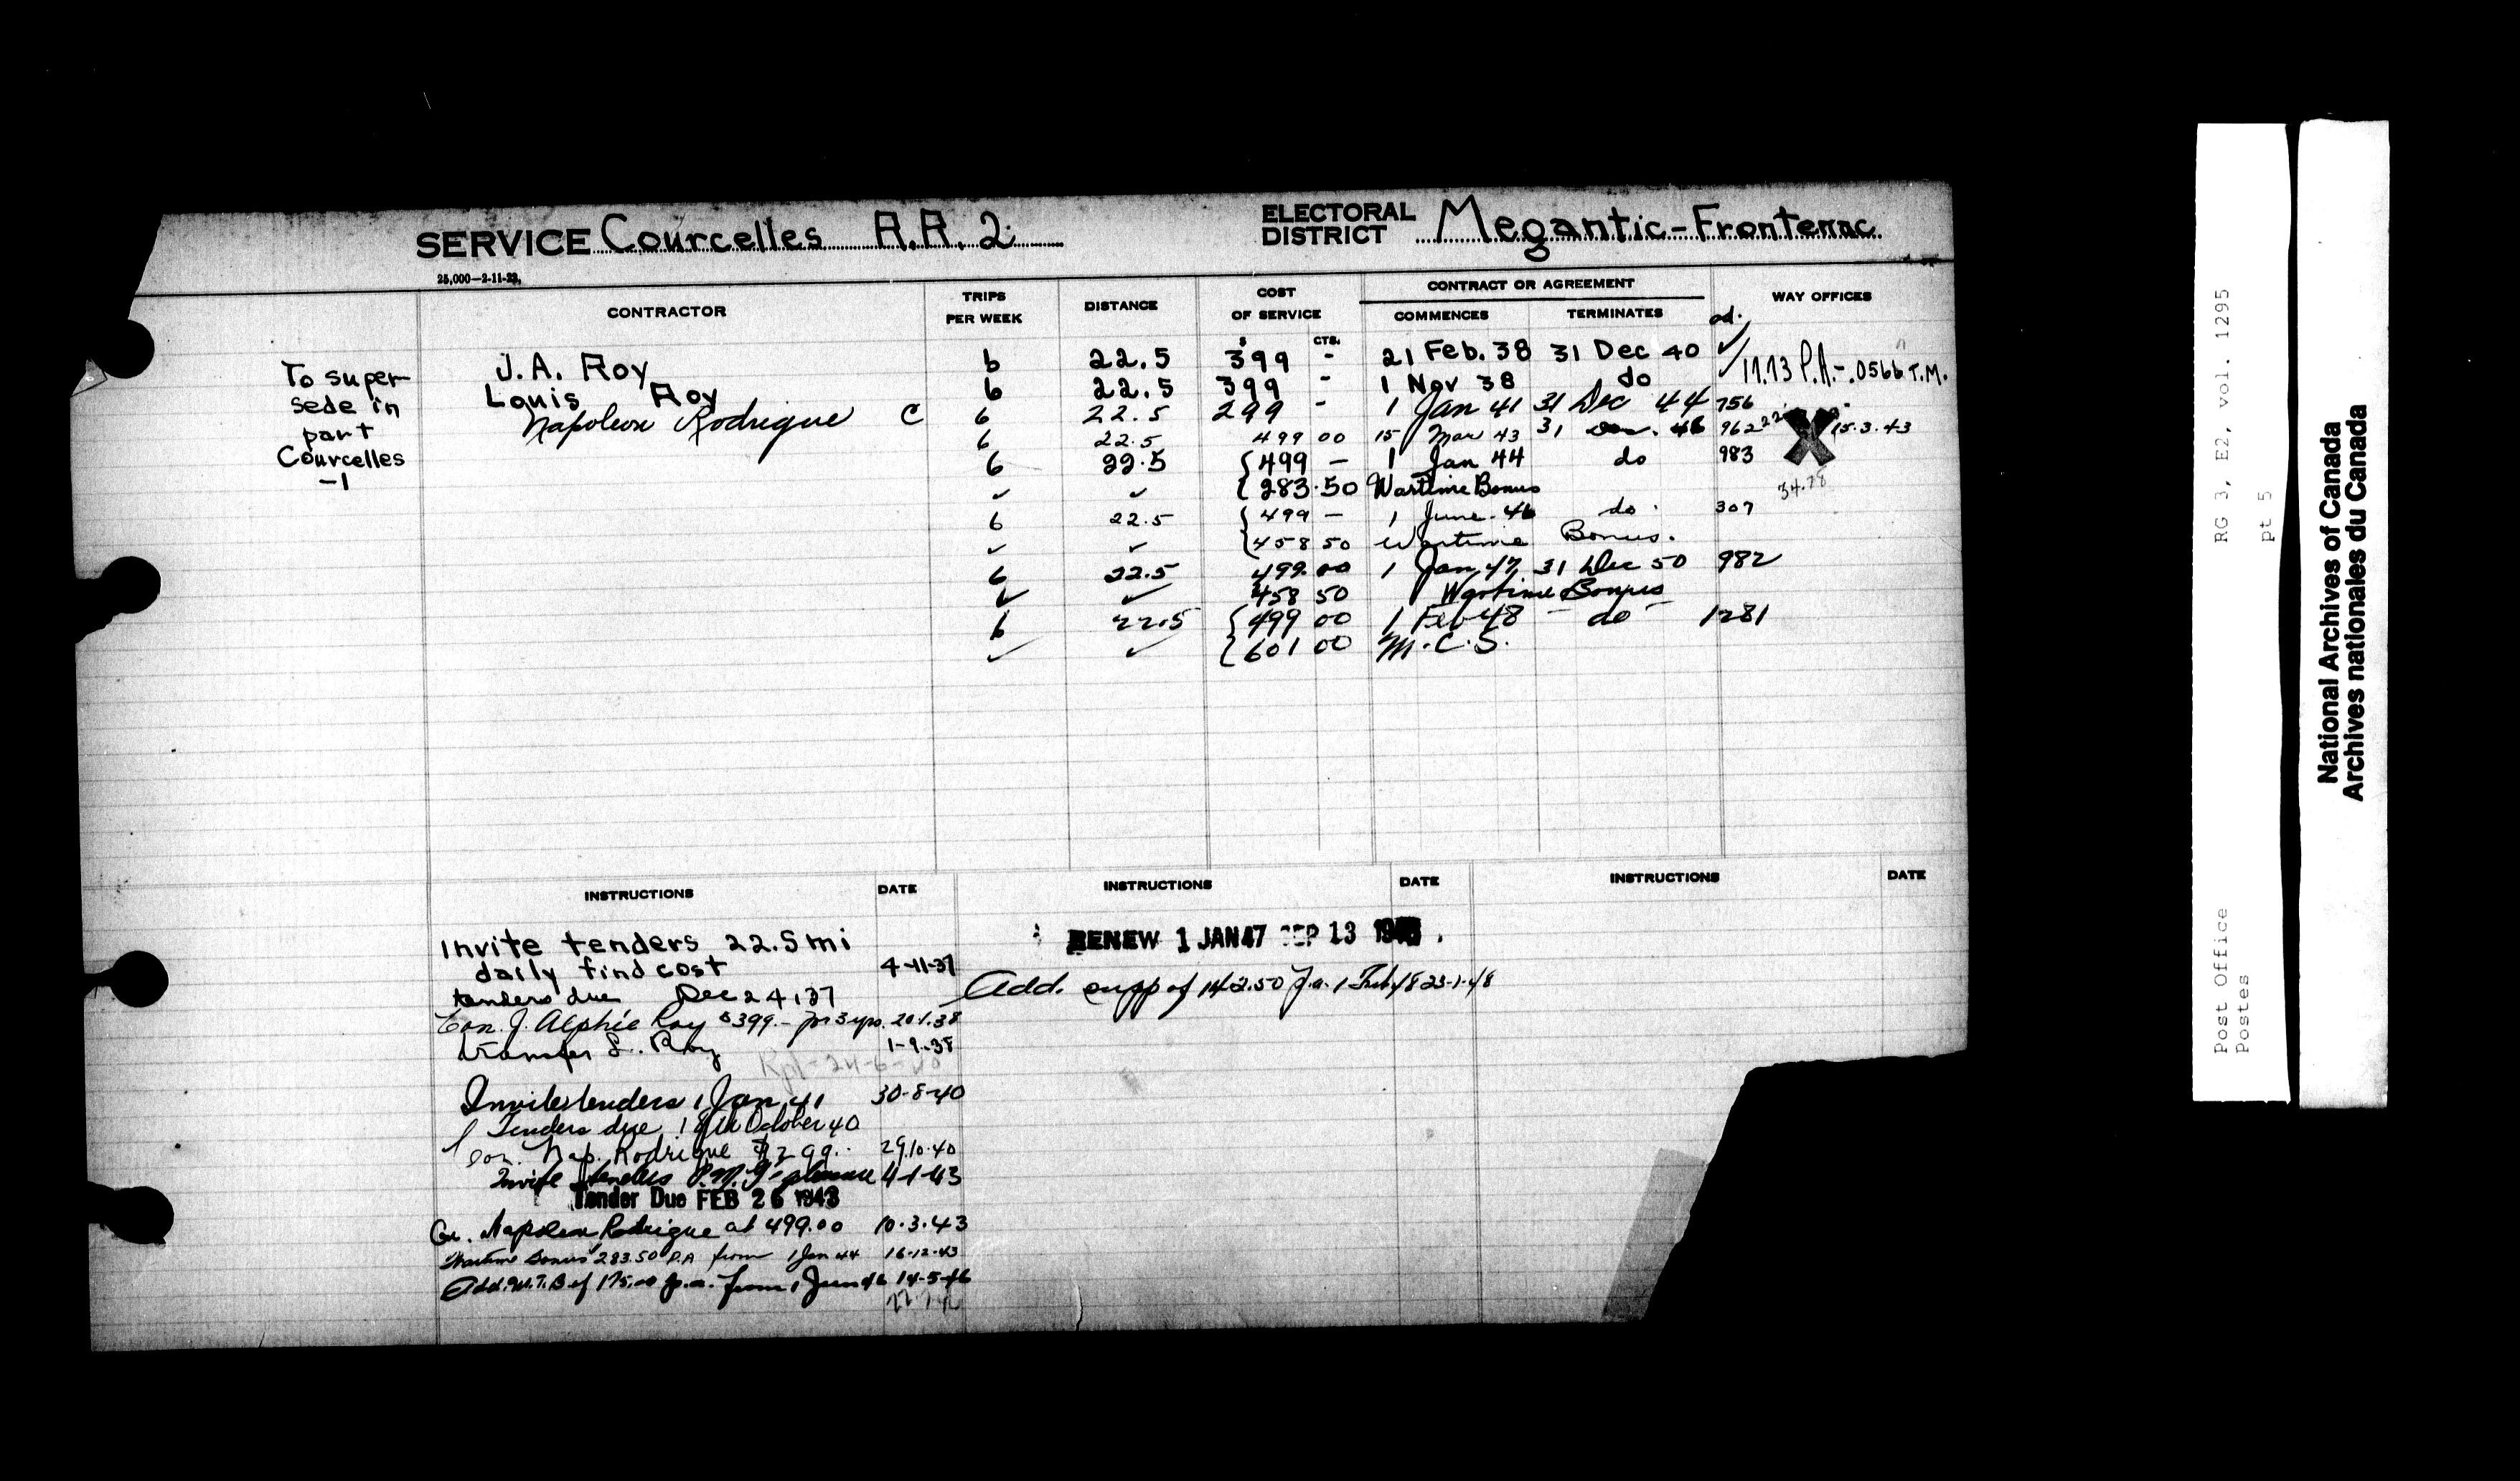 SERVICE Courcelles R.R. 2
ELECTORAL DISTRICT Megantic-Frontenac
25,000—2-11-33.
CONTRACTOR
TRIPS PER WEEK
DISTANCE
COST OF SERVICE
CONTRACT OR AGREEMENT
COMMENCES
TERMINATES
WAY OFFICES
$ CTS.
To super-
sede in
part
Courcelles
-1
J.A. Roy 6 22.5 399 - 21 Feb. 38 31 Dec 40 ✓
Louis Roy 6 22.5 399 - 1 Nov 38 do ✓ 17.73 P.A.-.0566 T.M.
Napoleon Rodrigue C 6 22.5 299 - 1 Jan 41 31 Dec 44 756
6 22.5 499 00 15 Mar 43 31 Dec. 46 962 15.3.43
6 22.5 499 — 1 Jan 44 do 983
✓ ✓ 283.50 Wartime Bonus 34.78
6 22.5 499 — 1 June 46 do 307
✓ ✓ 458 50 Wartime Bonus.
6 22.5 499.00 1 Jan 47 31 Dec 50 982
✓ ✓ 458 50 Wartime Bonus
6 22.5 499 00 1 Feb 48 - do - 1281
✓ ✓ 601 00 M.C.S.
INSTRUCTIONS DATE INSTRUCTIONS DATE INSTRUCTIONS DATE
Invite tenders 22.5 mi
daily find cost 4-11-37
tenders due Dec 24, 37
Con. J. Alphie Roy $399.- for 3 yrs. 20.1.38
transfer L. Roy 1-9-38
Rpt-24-6-40
Invite tenders 1 Jan 41 30-8-40
Tenders due 18th October 40
Con. Nap. Rodrigue $299.. 29.10.40
Invite tenders P.M.G's pleasure 4-1-43
Tender Due FEB 26 1943
Con. Napoleon Rodrigue at 499.00 10.3.43
Wartime Bonus 283.50 P.A from 1 Jan 44 16-12-43
Add. W.T.B of 175.00 p.a. from 1 June 46 14-5-46
RENEW 1 JAN 47 SEP 13
Add. supp of 142.50 p.a. 1 Feb 48 23-1-48
RG 3, E2, vol. 1295
pt 5
Post Office
Postes
National Archives of Canada
Archives nationales du Canada